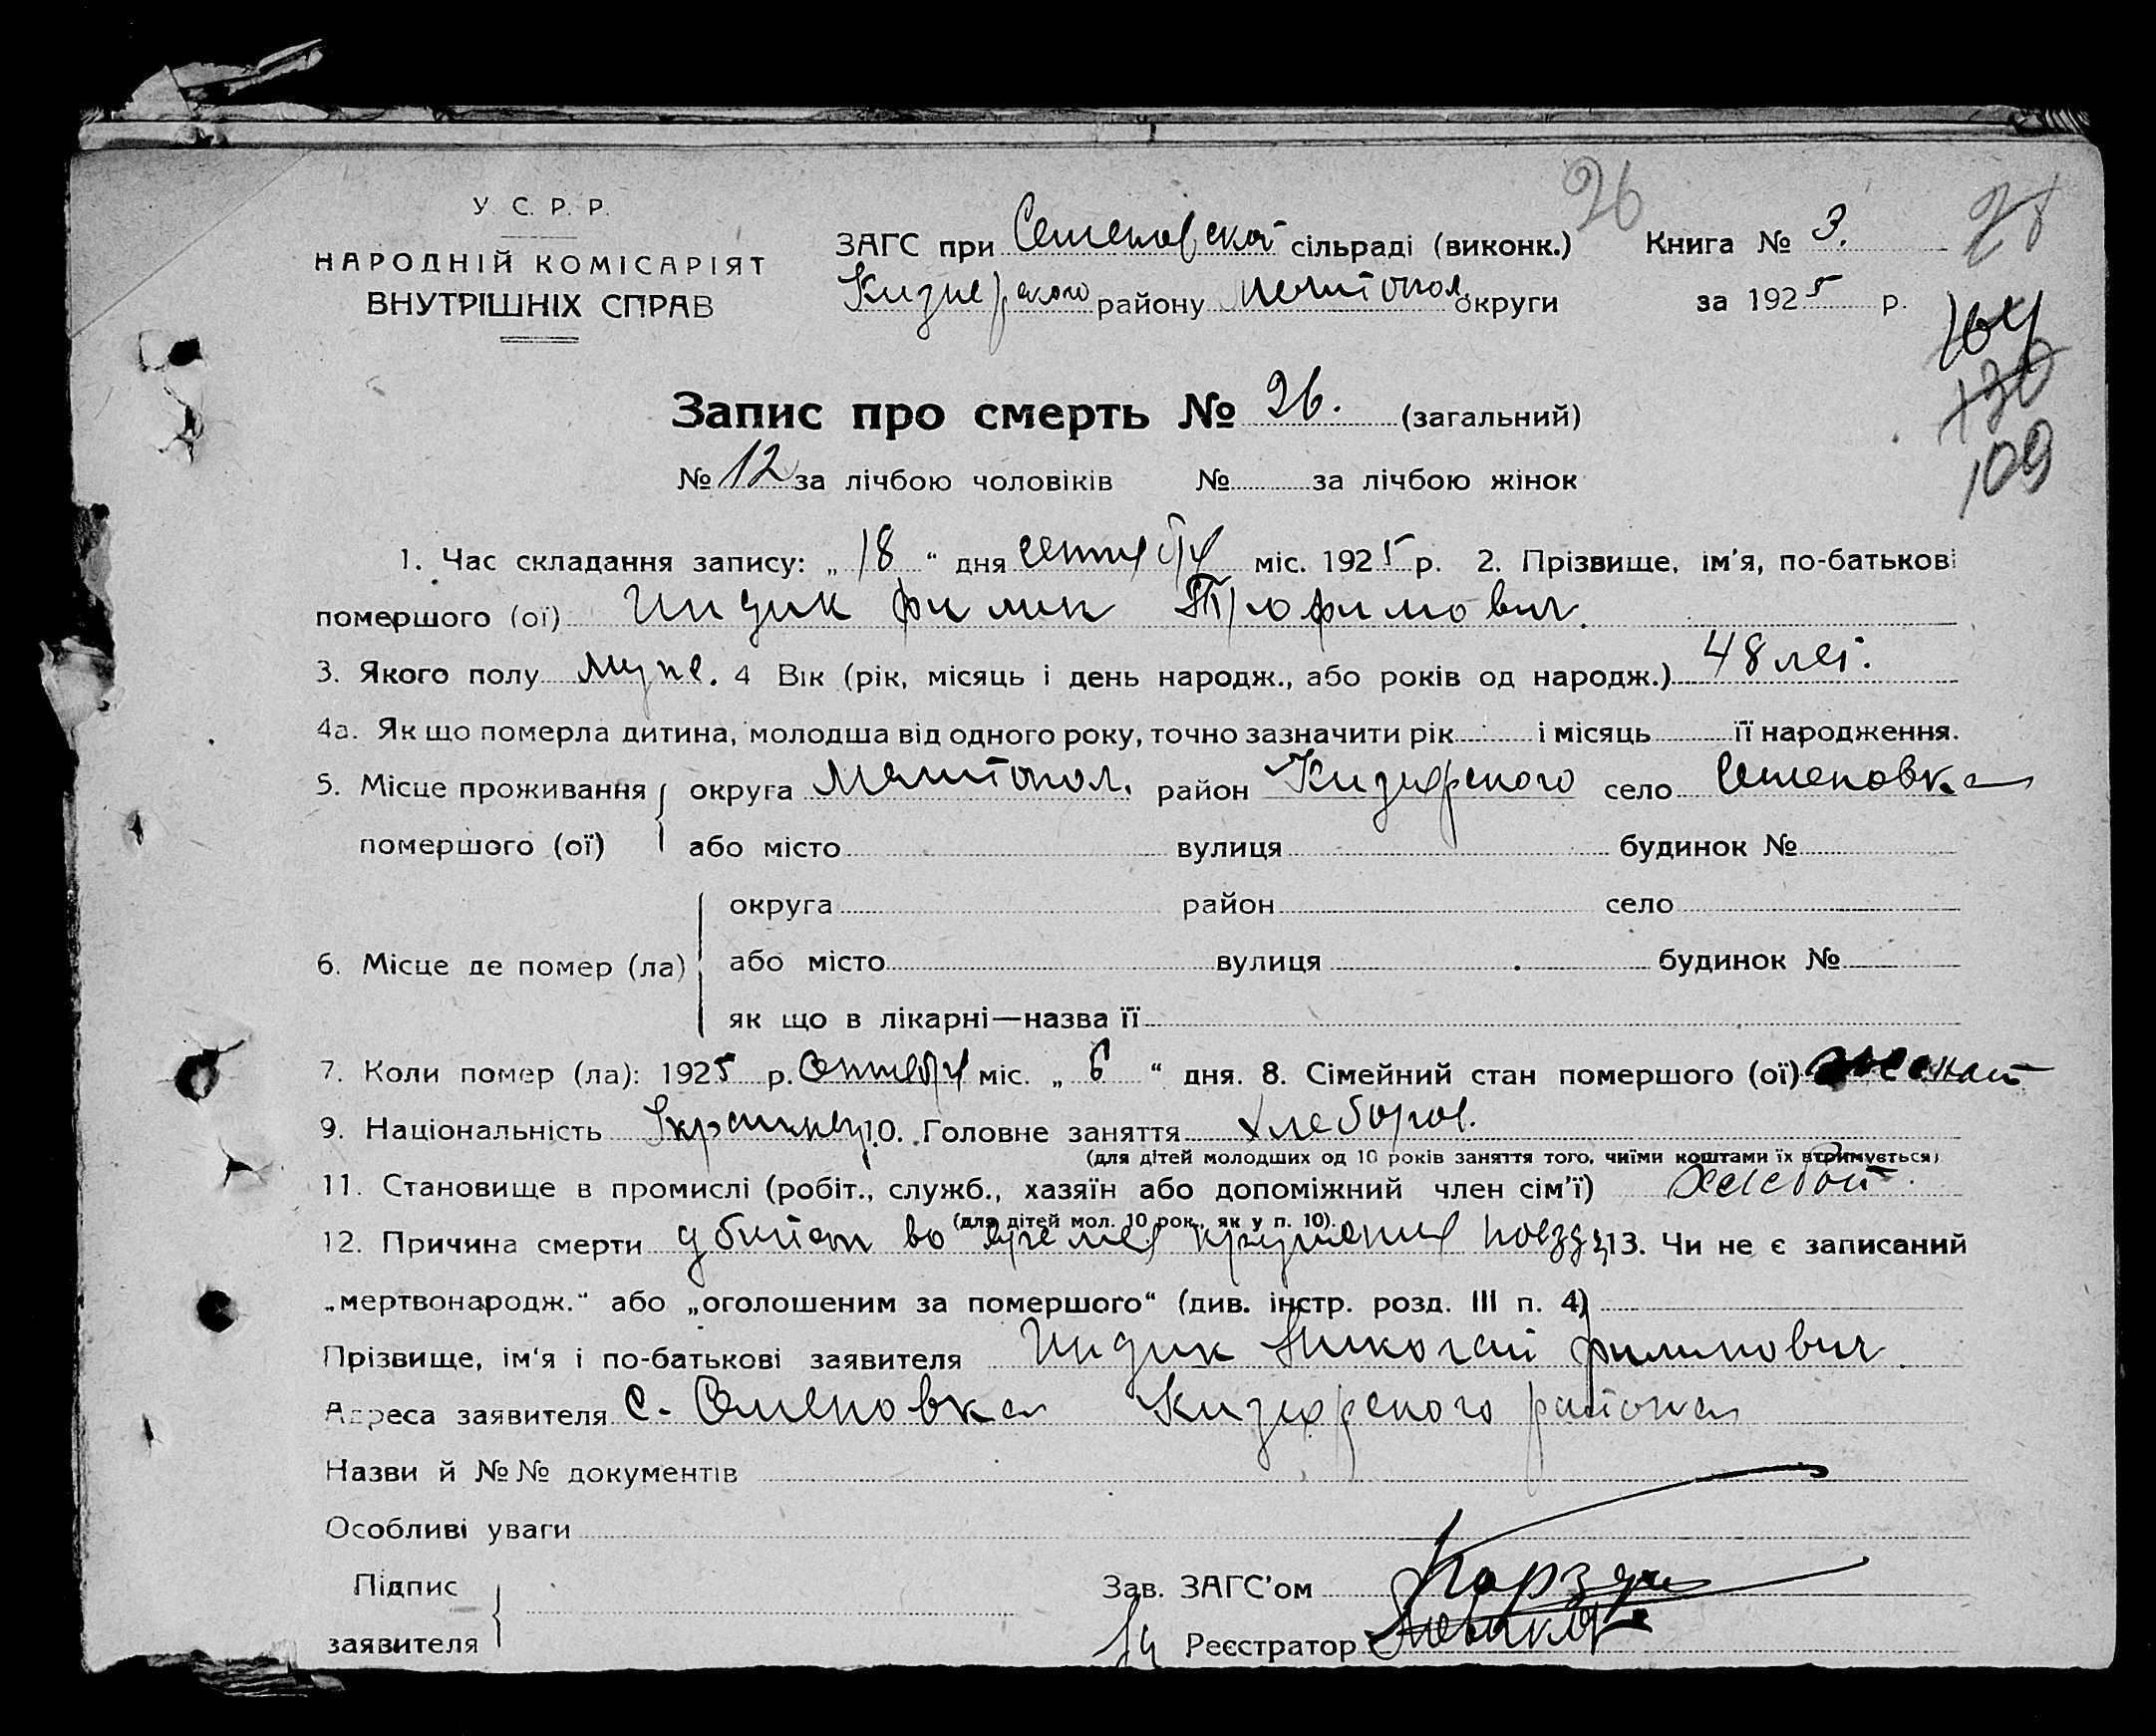 26
У. С. Р. Р.
НАРОДНІЙ КОМІСАРІЯТ
ВНУТРІШНІХ СПРАВ
ЗАГС при Семеновской сільраді (виконк.) Книга № 3.
району Мелитопол. округи за 1925 р.
109
Запис про смерть № 26. (загальний)
№ 12 за лічбою чоловіків № за лічбою жінок
1. Час складання запису: „ 18 “ дня сентября міс. 1925 р. 2. Прізвище, ім'я, по-батькові
помершого (ої) Индик Филип Трофимович.
3. Якого полу муж. 4 Вік (рік, місяць і день народж., або років од народж.) 48 лет.
4а. Як що померла дитина, молодша від одного року, точно зазначити рік і місяць її народження.
5. Місце проживання округа Мелитопол. район село Семеновка
помершого (ої) або місто вулиця будинок №
округа район село
6. Місце де помер (ла) або місто вулиця будинок №
як що в лікарні—назва її
7. Коли помер (ла): 1925 р. сентября міс. „ 6 “ дня. 8. Сімейний стан помершого (ої) женат
9. Національність Украинец 10. Головне заняття хлебороб.
(для дітей молодших од 10 років заняття того, чиїми коштами їх втримується)
11. Становище в промислі (робіт., служб., хазяїн або допоміжний член сім'ї)
(для дітей мол. 10 рок., як у п. 10).
12. Причина смерти убитой во время крушения поезда 13. Чи не є записаний
„мертвонародж.“ або „оголошеним за помершого“ (див. інстр. розд. III п. 4)
Прізвище, ім'я і по-батькові заявителя Индик Николай Филипович.
Адреса заявителя с. Семеновка района
Назви й №№ документів
Особливі уваги
Підпис Зав. ЗАГС'ом
заявителя Реєстратор